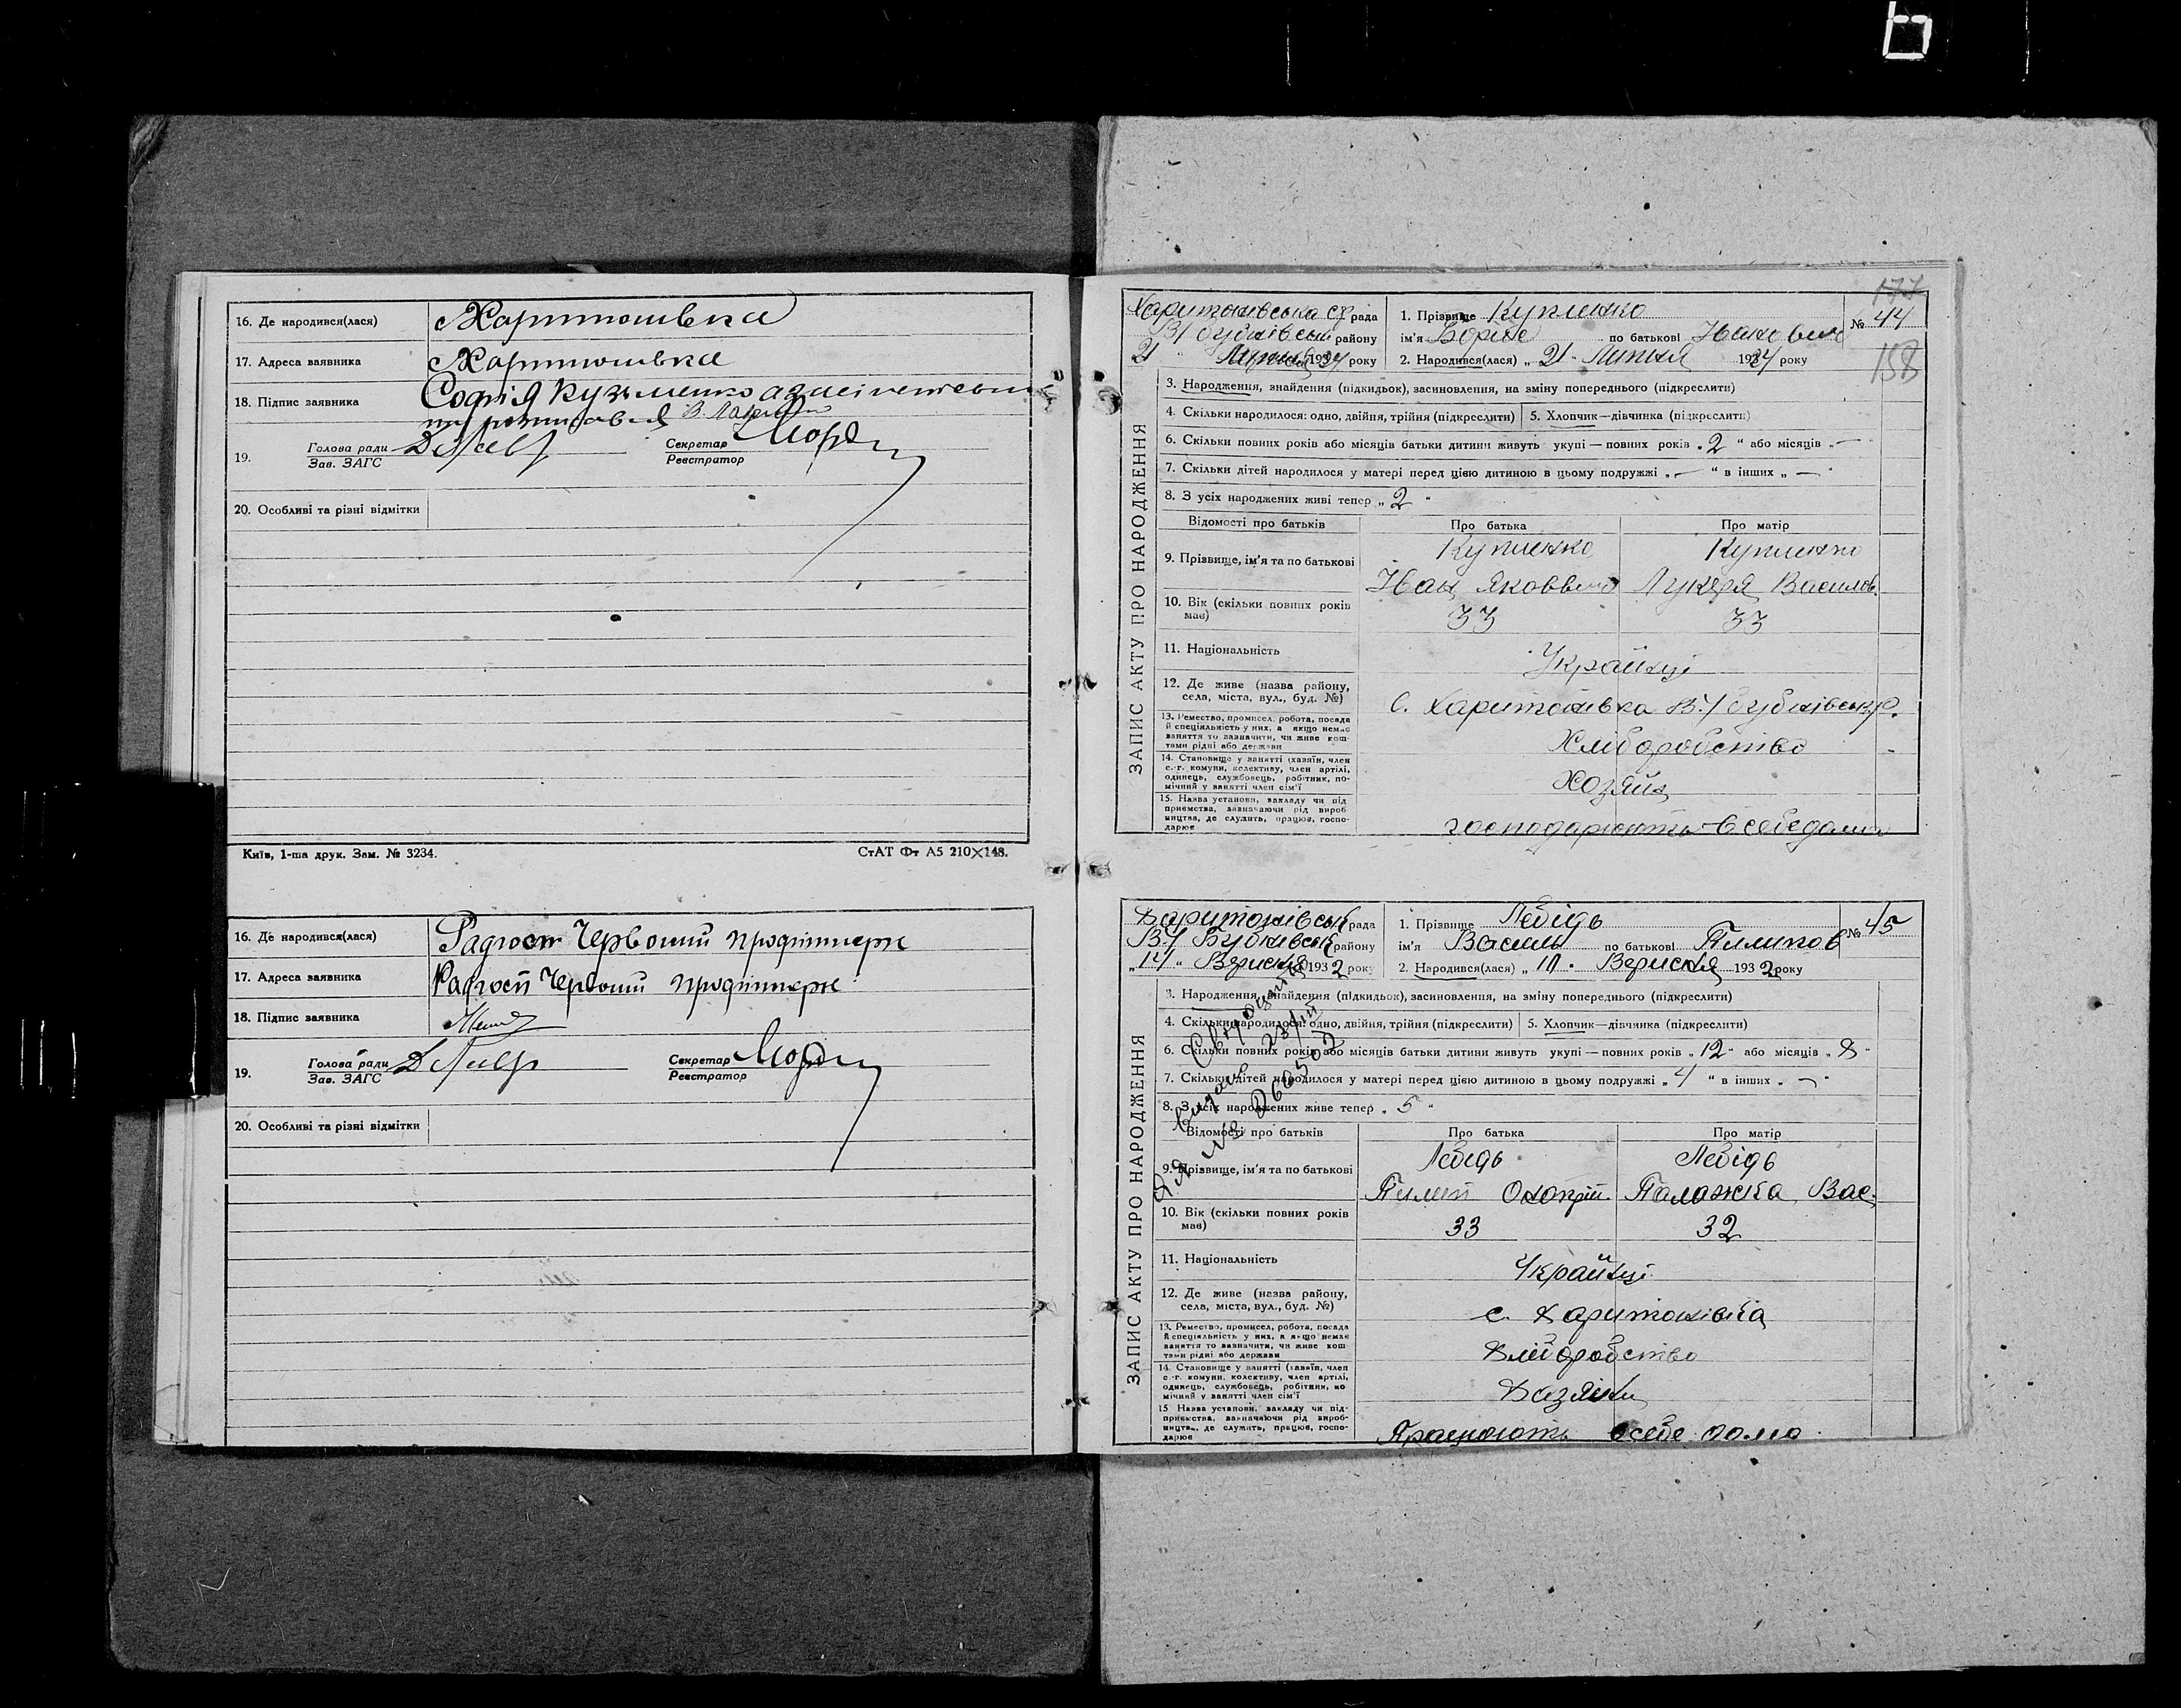 16. Де народився(лася) Харитонівка
17. Адреса заявника Харитонівка
18. Підпис заявника Софія Кузьменко
19. Голова ради
Зав. ЗАГС
Секретар
Реєстратор
20. Особливі та різні відмітки
Київ, 1-ша друк. Зам. № 3234. СтАТ Фт А5 210×148.
16. Де народився(лася) Радгосп Червоний
17. Адреса заявника Радгосп Червоний
18. Підпис заявника
19. Голова ради
Зав. ЗАГС
Секретар
Реєстратор
20. Особливі та різні відмітки
177
158
ЗАПИС АКТУ ПРО НАРОДЖЕННЯ
Харитонівська с/рада 1. Прізвище Купленко № 44
району ім'я по батькові
21 року 2. Народився(лася) „ 21 " Липня року
3. Народження, знайдення (підкидьок), засиновлення, на зміну попереднього (підкреслити)
4. Скільки народилося: одно, двійня, трійня (підкреслити) 5. Хлопчик—дівчинка (підкреслити)
6. Скільки повних років або місяців батьки дитини живуть укупі — повних років „ 2 " або місяців „ — "
7. Скільки дітей народилося у матері перед цією дитиною в цьому подружжі „ — " в інших „ — "
8. З усіх народжених живі тепер „ 2 "
Відомості про батьків Про батька Про матір
9. Прізвище, ім'я та по батькові Купленко Купленко
Іван Яковович Лукеря Василів.
10. Вік (скільки повних років має) 33 33
11. Національність Українці
12. Де живе (назва району, села, міста, вул., буд. №) с. Харитонівка
13. Ремество, промисел, робота, посада й спеціяльність у них, а якщо немає заняття то зазначити, чи живе коштами рідні або держави Хліборобство
14. Становище у занятті (хазяїн, член с.-г. комуни, колективу, член артілі, одинець, службовець, робітник, помічний у занятті член сім'ї Хозяїн
15. Назва установи, закладу чи підприємства, зазначаючи рід виробництва, де служить, працює, господарює господарюють в себе дома
ЗАПИС АКТУ ПРО НАРОДЖЕННЯ
Харитонівськ рада 1. Прізвище Лебідь № 45
району ім'я Василь по батькові Пилипов
„14" Вересня 1932 року 2. Народився(лася) „ 10 " Вересня 1932 року
3. Народження, знайдення (підкидьок), засиновлення, на зміну попереднього (підкреслити)
4. Скільки народилося: одно, двійня, трійня (підкреслити) 5. Хлопчик—дівчинка (підкреслити)
6. Скільки повних років або місяців батьки дитини живуть укупі — повних років „ 12 " або місяців „ 8 "
7. Скільки дітей народилося у матері перед цією дитиною в цьому подружжі „ 4 " в інших „ — "
8. З усіх народжених живе тепер „ 5 "
Відомості про батьків Про батька Про матір
9. Прізвище, ім'я та по батькові Лебідь Лебідь
Пилип Онопрій. Палажка Вас.
10. Вік (скільки повних років має) 33 32
11. Національність Українці
12. Де живе (назва району, села, міста, вул., буд. №) с. Харитонівка
13. Ремество, промисел, робота, посада й спеціяльність у них, а якщо немає заняття то зазначити, чи живе коштами рідні або держави Хліборобство
14. Становище у занятті (хазяїн, член с.-г. комуни, колективу, член артілі, одинець, службовець, робітник, помічний у занятті член сім'ї Хазяїни
15 Назва установи, закладу чи підприємства, зазначаючи рід виробництва, де служить, працює, господарює Працюють в себе дома